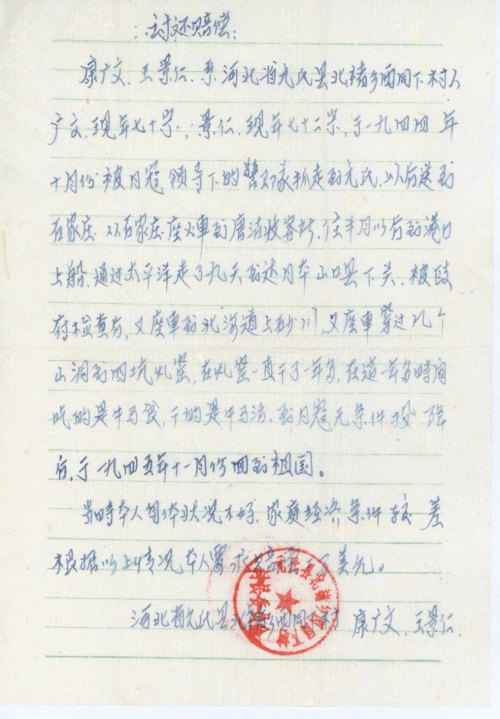 :讨还赔偿:
康广文、王景仁、系河北省元氏县北褚乡西同下村人
广文、现年七十岁,景仁、现年七十二岁,于一九四四年
十月份被日寇领导下的警备队抓走到元氏、以后送到
石家庄、从石家庄座火車到唐沽收容所、住半月以后到港口
上船、通过太平洋走了九天到达日本山口县下关、被政
府检查后,又座車到北海道上砂川,又座車穿过几个
山洞到四坑,在一直干了一年多,在这一年多时间
吃的是牛马食,干的是牛马活、到日寇无条件投降
后,于一九四五年十一月份回到祖国。
当时本人身体状况不好、家庭经济条件较差
根据以上情况本人要求万美元。
河北省元氏县北褚乡西同下村 康广文、王景仁、